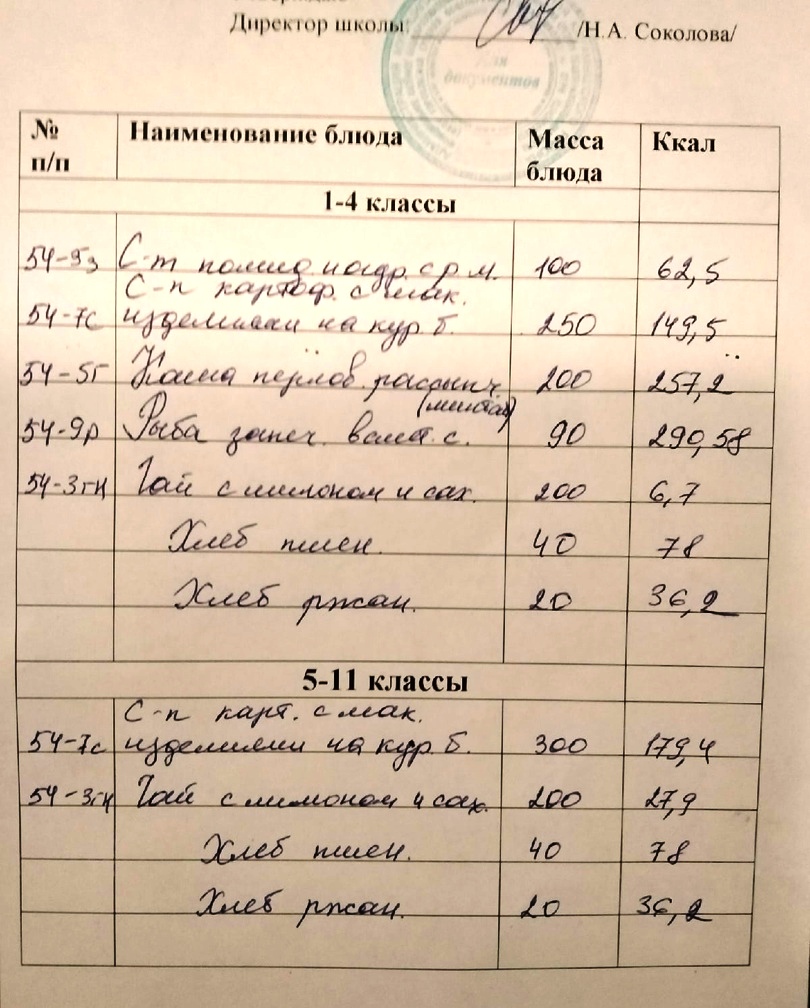 Директор школы: /Н.А. Соколова/
Для
документов
№ п/п Наименование блюда Масса блюда Ккал
1-4 классы
54-5з С-т помид. и огур. с р.м. 100 62,5
С-п картоф. с мак.
54-7с изделиями на кур. б. 250 149,5
54-5г Каша перлов. рассыпч. 200 257,2
(минтай)
54-9р Рыба запеч. в смет. с. 90 290,58
54-3гн Чай с лимоном и сах. 200 6,7
Хлеб пшен. 40 78
Хлеб ржан. 20 36,2
5-11 классы
С-п карт. с мак.
54-7с изделиями на кур. б. 300 179,4
54-3гн Чай с лимоном и сах. 200 27,9
Хлеб пшен. 40 78
Хлеб ржан. 20 36,2